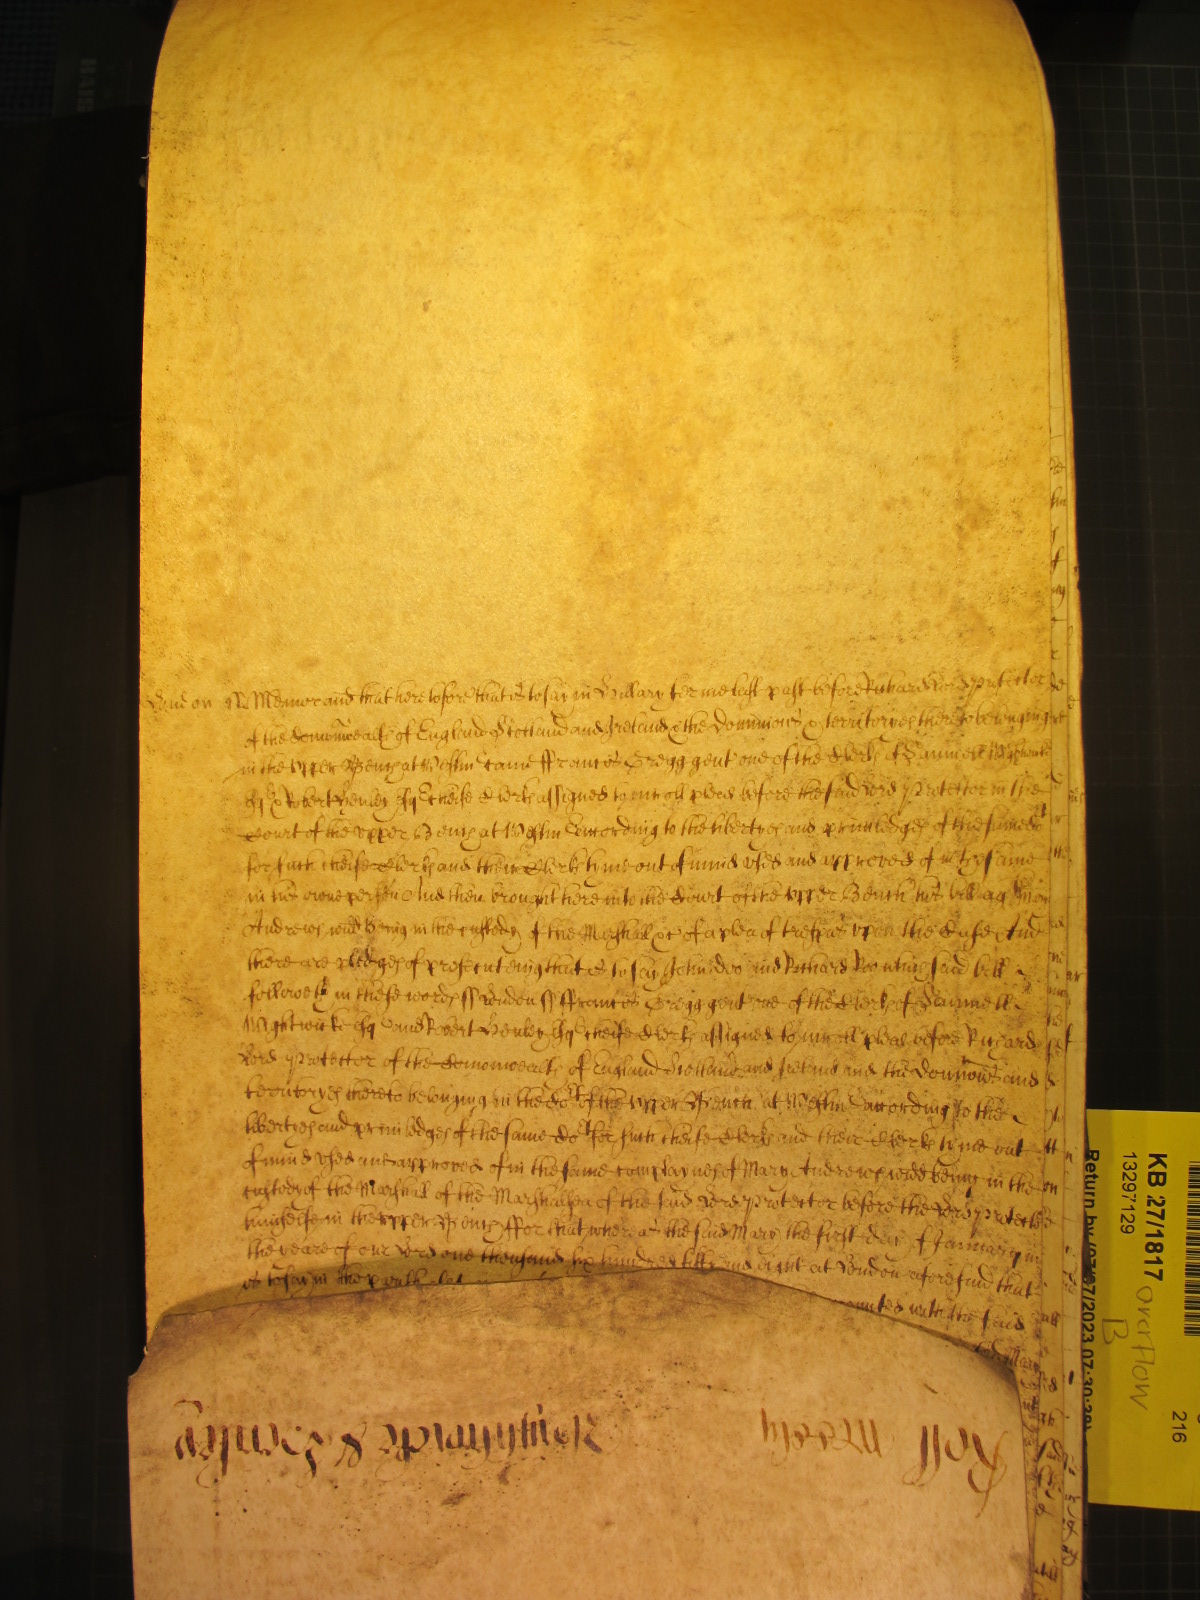 London ss Memorand that heretofore that is to say in Hillary terme last past before Richard Lord Protector
of the Comonwealth of England Scotland and Ireland & the Dominions & territoryes thereto belonging
in the Upper Bench at Westm came ffrancis Gregg gent one of the Clerks of Samuell Wightwick
Esq & Robert Henley Esq cheife Clerks assigned to inroll pleas before the said Lord Protector in the
Court of the upper Bench at Westm according to the libertyes and priviledges of the same Cot
for such cheife Clerks and their Clerks tyme out of mind used and approved of in the same
in his owne person And then brought here into the Court of the upper Bench his bill ag Mary
Andrewes widd being in the custody of the Marshall &c of a plea of trespas upon the Case And
there are pledges of prosecuting that is to say John Doo and Richard Roo which said bill
followeth in these words ss London ss ffrancis Gregg gent one of the Clerks of Samuell
Wightwicke Esq and Robert Henley Esq cheife Clerks assigned to inroll pleas before Richard
Lord Protector of the Comonwealth of England Scotland and Ireland and the Dominions and
territoryes thereto belonging in the Cot of the upper Bench at Westm according to the
libertyes and priviledges of the same Cot for such cheife Clerks and their Clerks tyme out
of mind used and approved of in the same complaynes of Mary Andrewes widd being in the
custody of the Marshall of the Marshalsea of the said Lord Protector before the Lord Protector
himselfe in the upper Bench ffor that whereas the said Mary the first day of January in
the yeare of our Lord one thousand six hundred fifty and eight at London aforesaid that
is to say in the parish
with the said
Mary
Roll
Wightwicke & Henley
KB 27/1817 overflow
B
13297129
Return by (07/07/2023 07:30:38)
216